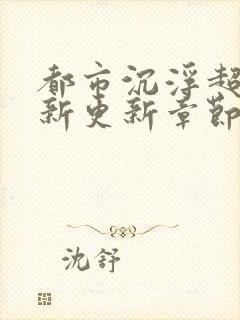 都市沉浮超
新更新章节
沈舒